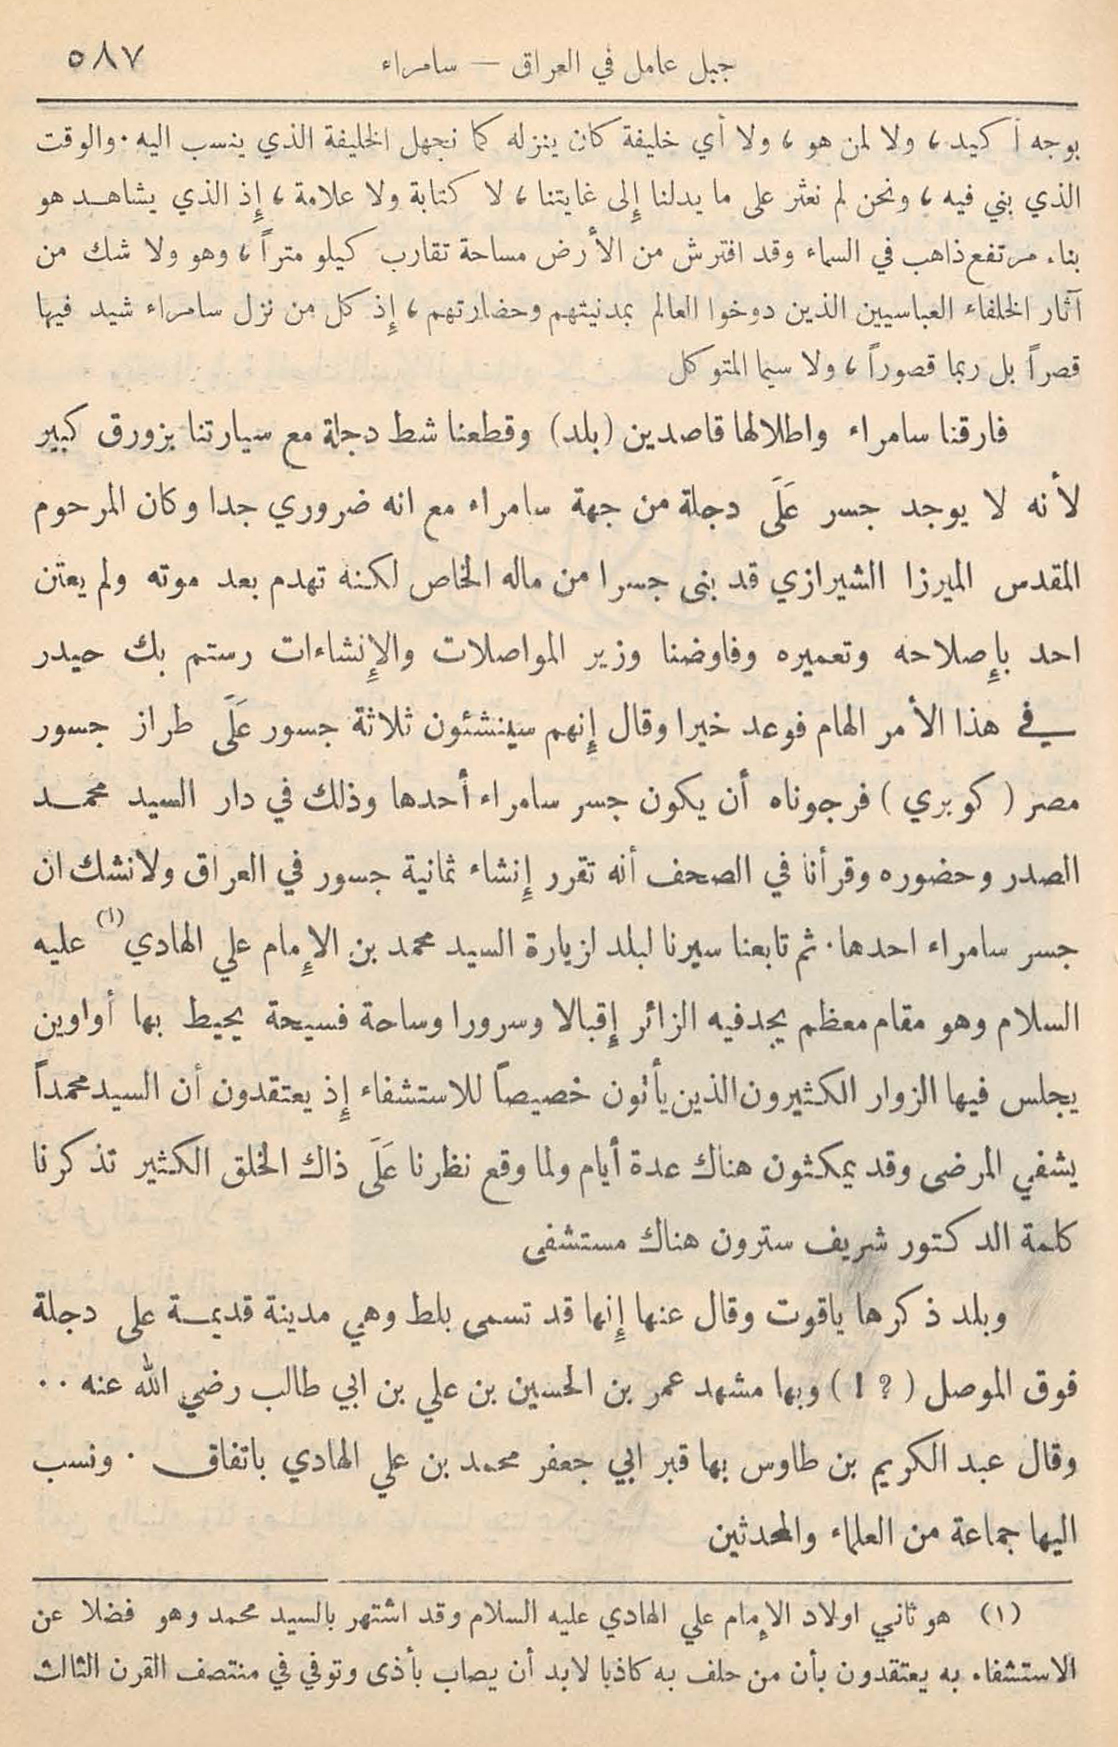 جبل عامل في العراق — سامراء ٥٨٧
بوجه أكيد ، ولا لمن هو ، ولا أي خليفة كان ينزله كما نجهل الخليفة الذي ينسب اليه . والوقت
الذي بني فيه ، ونحن لم نعثر على ما يدلنا إلى غايتنا ، لا كتابة ولا علامة ، إذ الذي يشاهد هو
بناء مرتفع ذاهب في السماء وقد افترش من الأرض مساحة تقارب كيلو متراً ، وهو ولا شك من
آثار الخلفاء العباسيين الذين دوخوا العالم بمدنيتهم وحضارتهم ، إذ كل من نزل سامراء شيد فيها
قصراً بل ربما قصوراً ، ولا سيما المتوكل
فارقنا سامراء واطلالها قاصدين (بلد) وقطعنا شط دجلة مع سيارتنا بزورق كبير
لأنه لا يوجد جسر عَلَى دجلة من جهة سامراء مع انه ضروري جدا وكان المرحوم
المقدس الميرزا الشيرازي قد بنى جسرا من ماله الخاص لكنه تهدم بعد موته ولم يعتن
احد بإصلاحه وتعميره وفاوضنا وزير المواصلات والإنشاءات رستم بك حيدر
في هذا الأمر الهام فوعد خيرا وقال إنهم سينشئون ثلاثة جسور عَلَى طراز جسور
مصر ( كوبري ) فرجوناه أن يكون جسر سامراء أحدها وذلك في دار السيد محمد
الصدر وحضوره وقرأنا في الصحف أنه تقرر إنشاء ثمانية جسور في العراق ولانشك ان
جسر سامراء احدها . ثم تابعنا سيرنا لبلد لزيارة السيد محمد بن الإمام علي الهادي (١) عليه
السلام وهو مقام معظم يجدفيه الزائر إقبالا وسرورا وساحة فسيحة يحيط بها أواوين
يجلس فيها الزوار الكثيرون الذين يأتون خصيصاً للاستشفاء إذ يعتقدون أن السيد محمداً
يشفي المرضى وقد يمكثون هناك عدة أيام ولما وقع نظرنا عَلَى ذاك الخلق الكثير تذكرنا
كلمة الدكتور شريف سترون هناك مستشفى
وبلد ذكرها ياقوت وقال عنها إنها قد تسمى بلط وهي مدينة قديمة على دجلة
فوق الموصل ( ? ! ) وبها مشهد عمر بن الحسين بن علي بن ابي طالب رضي الله عنه . .
وقال عبد الكريم بن طاوس بها قبر ابي جعفر محمد بن علي الهادي باتفاق . ونسب
اليها جماعة من العلماء والمحدثين
(١) هو ثاني اولاد الإمام علي الهادي عليه السلام وقد اشتهر بالسيد محمد وهو فضلا عن
الاستشفاء به يعتقدون بأن من حلف به كاذبا لابد أن يصاب بأذى وتوفي في منتصف القرن الثالث